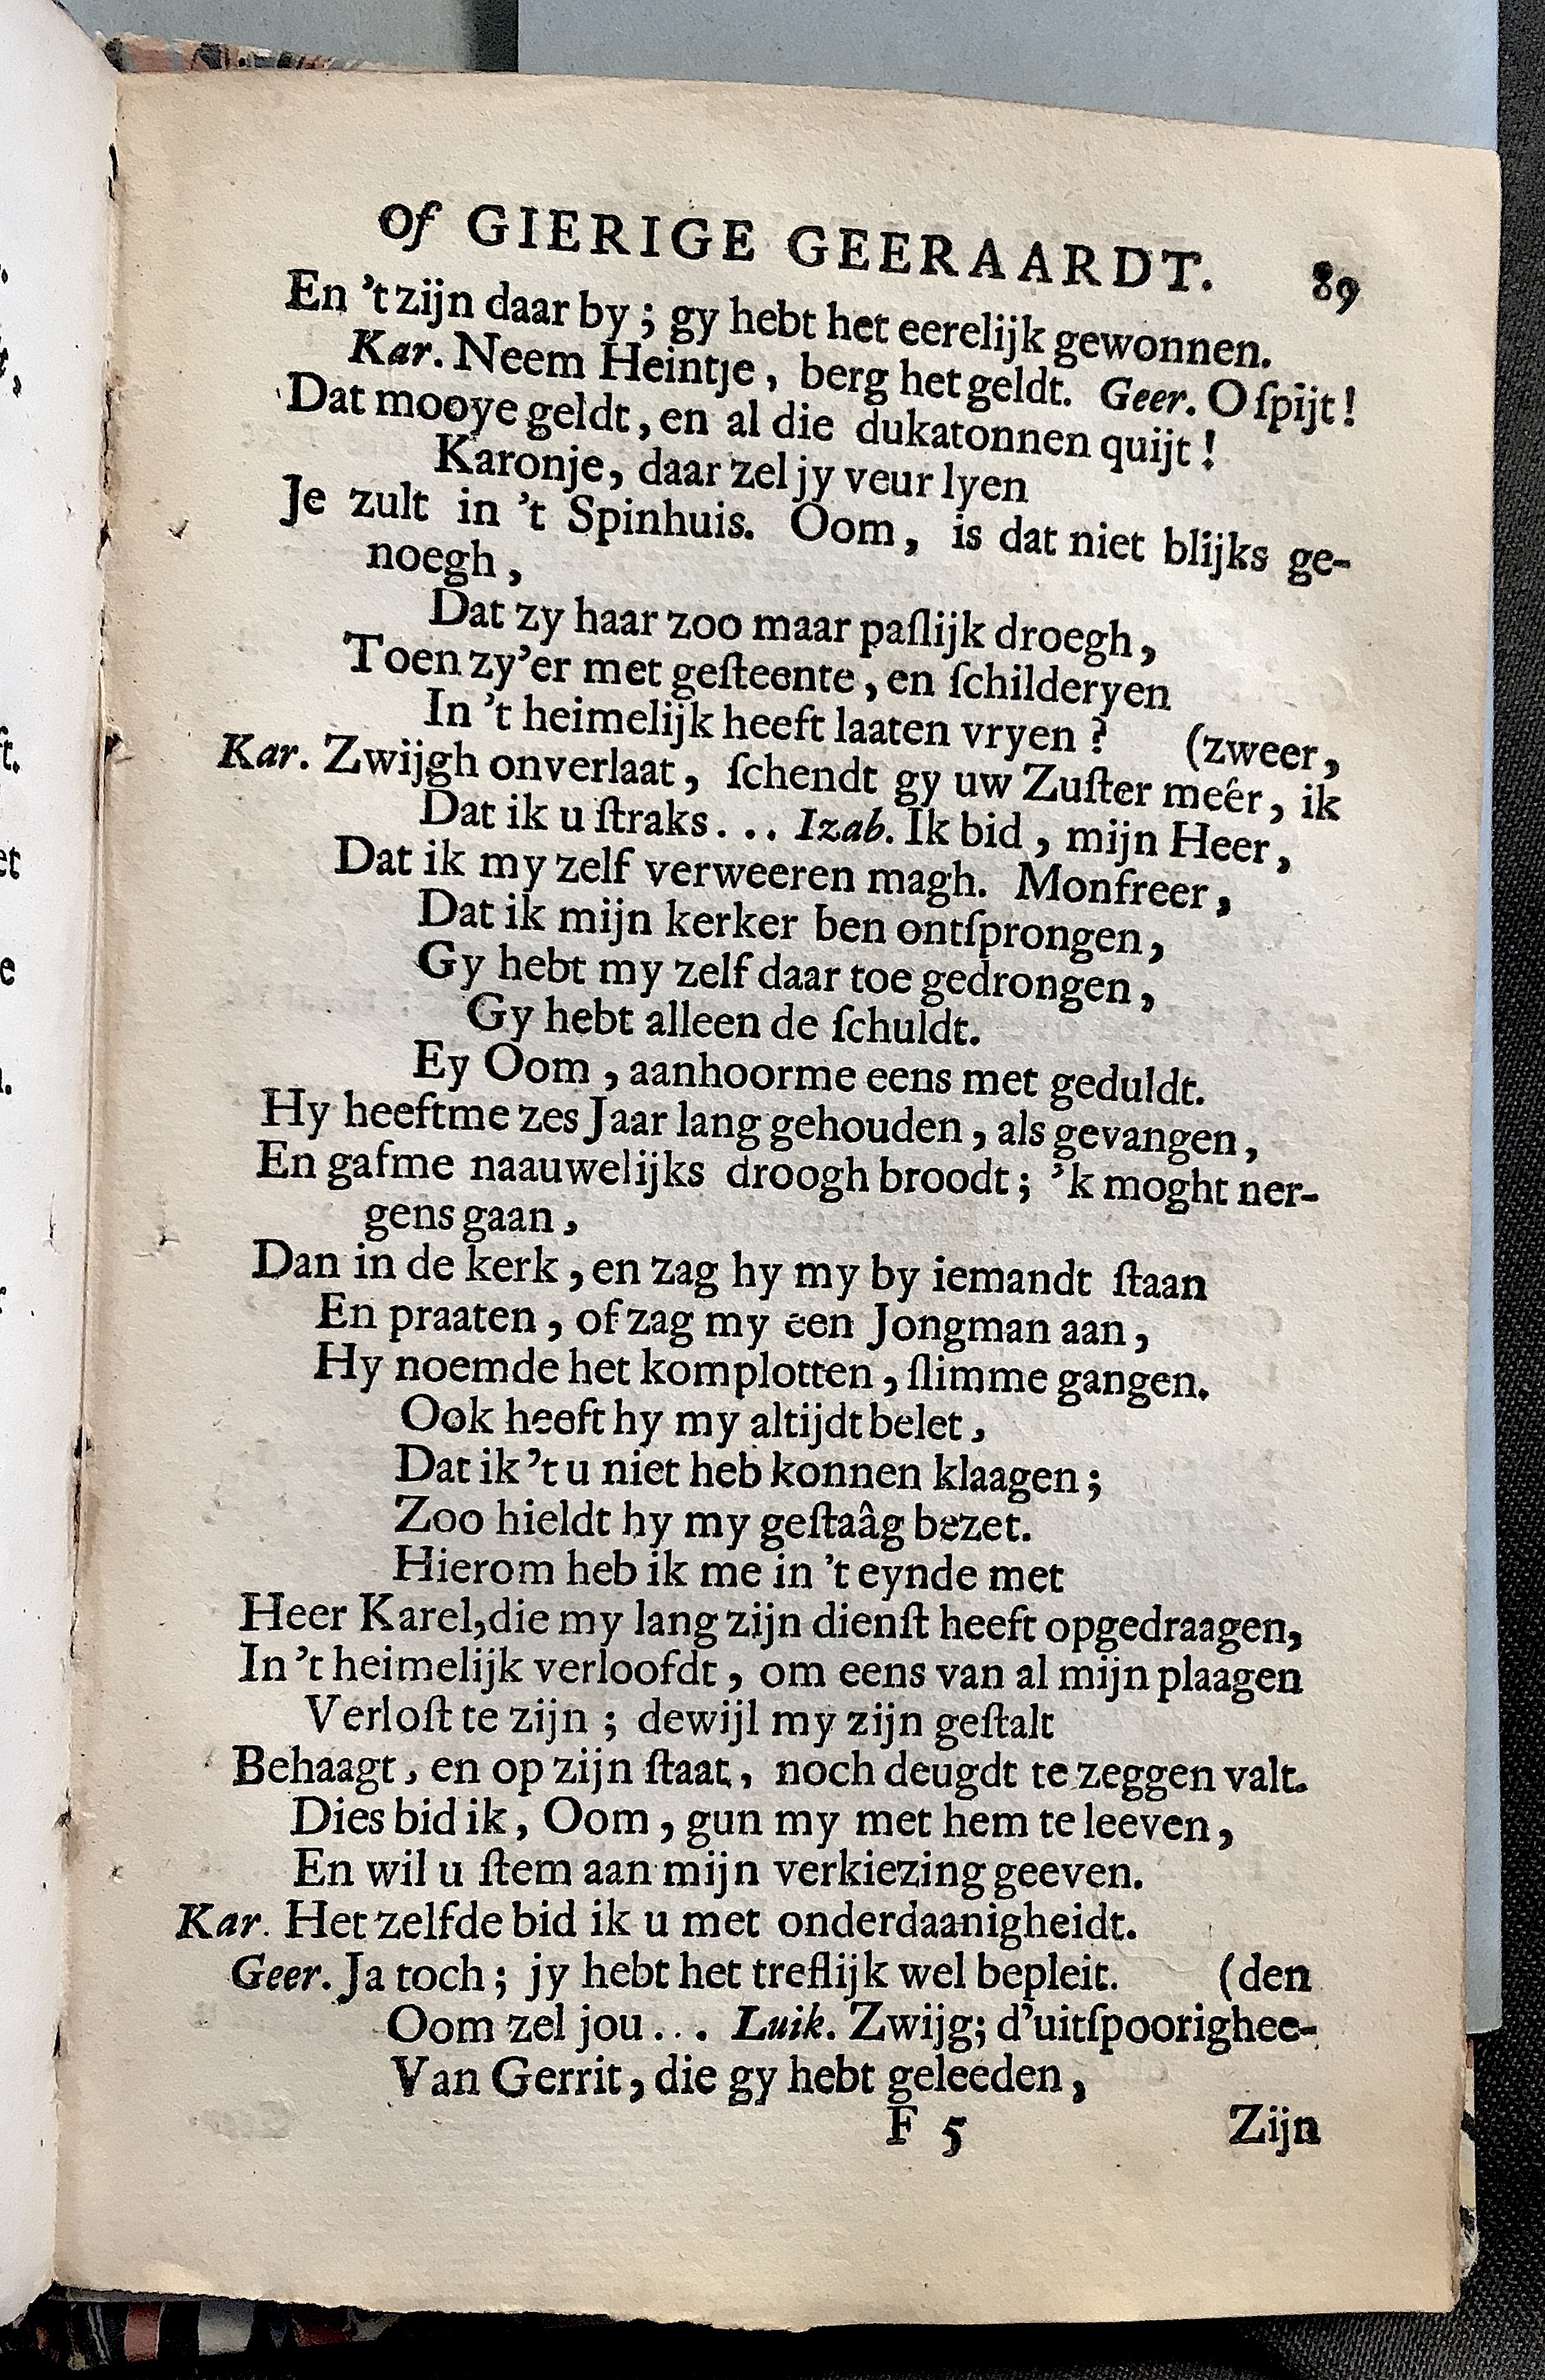 of GIERIGE GEERAARDT. 89
En 't zijn daar by; gy hebt het eerelijk gewonnen.
Kar. Neem Heintje, berg het geldt. Geer. O ſpijt!
Dat mooye geldt, en al die dukatonnen quijt!
Karonje, daar zel jy veur lyen
Je zult in 't Spinhuis. Oom, is dat niet blijks ge-
noegh,
Dat zy haar zoo maar paſlijk droegh,
Toen zy'er met geſteente, en ſchilderyen
In 't heimelijk heeft laaten vryen? (zweer,
Kar. Zwijgh onverlaat, ſchendt gy uw Zuſter meér, ik
Dat ik u ſtraks... Izab. Ik bid, mijn Heer,
Dat ik my zelf verweeren magh. Monfreer,
Dat ik mijn kerker ben ontſprongen,
Gy hebt my zelf daar toe gedrongen,
Gy hebt alleen de ſchuldt.
Ey Oom, aanhoorme eens met geduldt.
Hy heeftme zes Jaar lang gehouden, als gevangen,
En gafme naauwelijks droogh broodt; 'k moght ner-
gens gaan,
Dan in de kerk, en zag hy my by iemandt ſtaan
En praaten, of zag my een Jongman aan,
Hy noemde het komplotten, ſlimme gangen.
Ook heeft hy my altijdt belet,
Dat ik 't u niet heb konnen klaagen;
Zoo hieldt hy my geſtaâg bezet.
Hierom heb ik me in 't eynde met
Heer Karel, die my lang zijn dienſt heeft opgedraagen,
In 't heimelijk verloofdt, om eens van al mijn plaagen
Verloſt te zijn; dewijl my zijn geſtalt
Behaagt, en op zijn ſtaat, noch deugdt te zeggen valt.
Dies bid ik, Oom, gun my met hem te leeven,
En wil u ſtem aan mijn verkiezing geeven.
Kar. Het zelfde bid ik u met onderdaanigheidt.
Geer. Ja toch; jy hebt het treflijk wel bepleit. (den
Oom zel jou... Luik. Zwijg; d'uitſpoorighee-
Van Gerrit, die gy hebt geleeden,
F 5 Zijn